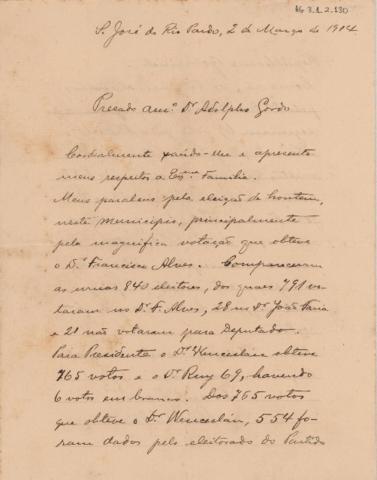 AG 3.1.2.130
S. José do Rio Pardo, 2 de Março de 1914
Presado am.º Dr. Adolpho Gordo
Cordialmente saúdo-lhe e apresento
meus respeitos a Ex.ma Familia.
Meus parabens pela eleição de hontem,
neste municipio, principalmente
pela magnifica votação que obteve
o Dr. Francisco Alves. Compareceram
as urnas 840 eleitores, dos quaes 791 vo-
taram no Dr. F. Alves, 28 no Dr. João Faria
e 21 não votaram para Deputado.
Para Presidente o Dr. Wenceslau obteve
765 votos e o Dr. Ruy 69, havendo
6 votos em branco. Dos 765 votos
que obteve o Dr. Wenceslau, 554 fo-
ram dados pelo eleitorado do Partido